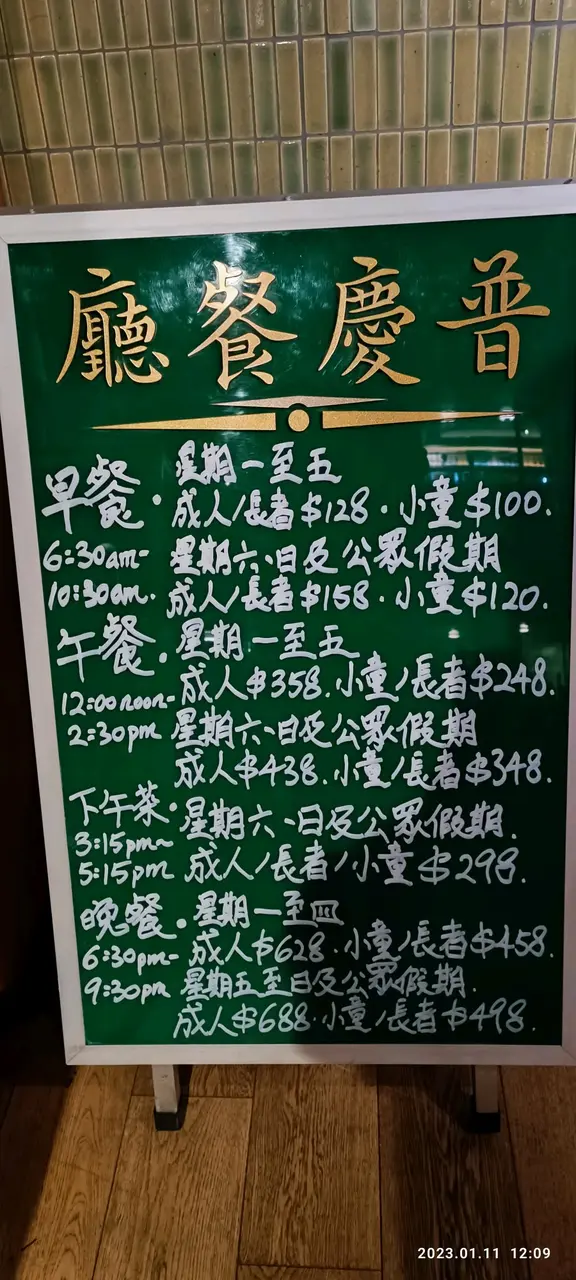 廳餐慶普
早餐.
星期一至五
成人/長者$128.小童$100.
6:30am-
10:30am.
星期六、日及公眾假期
成人/長者$158.小童$120.
午餐.
星期一至五
成人$358.小童/長者$248.
12:00noon-
2:30pm
星期六、日及公眾假期
成人$438.小童/長者$348.
下午茶.
3:15pm~
5:15pm
星期六、日及公眾假期.
成人/長者/小童$298.
晚餐.
星期一至四
6:30pm-
9:30pm
成人$628.小童/長者$458.
星期五至日及公眾假期.
成人$688.小童/長者$498.
2023.01.11 12:09